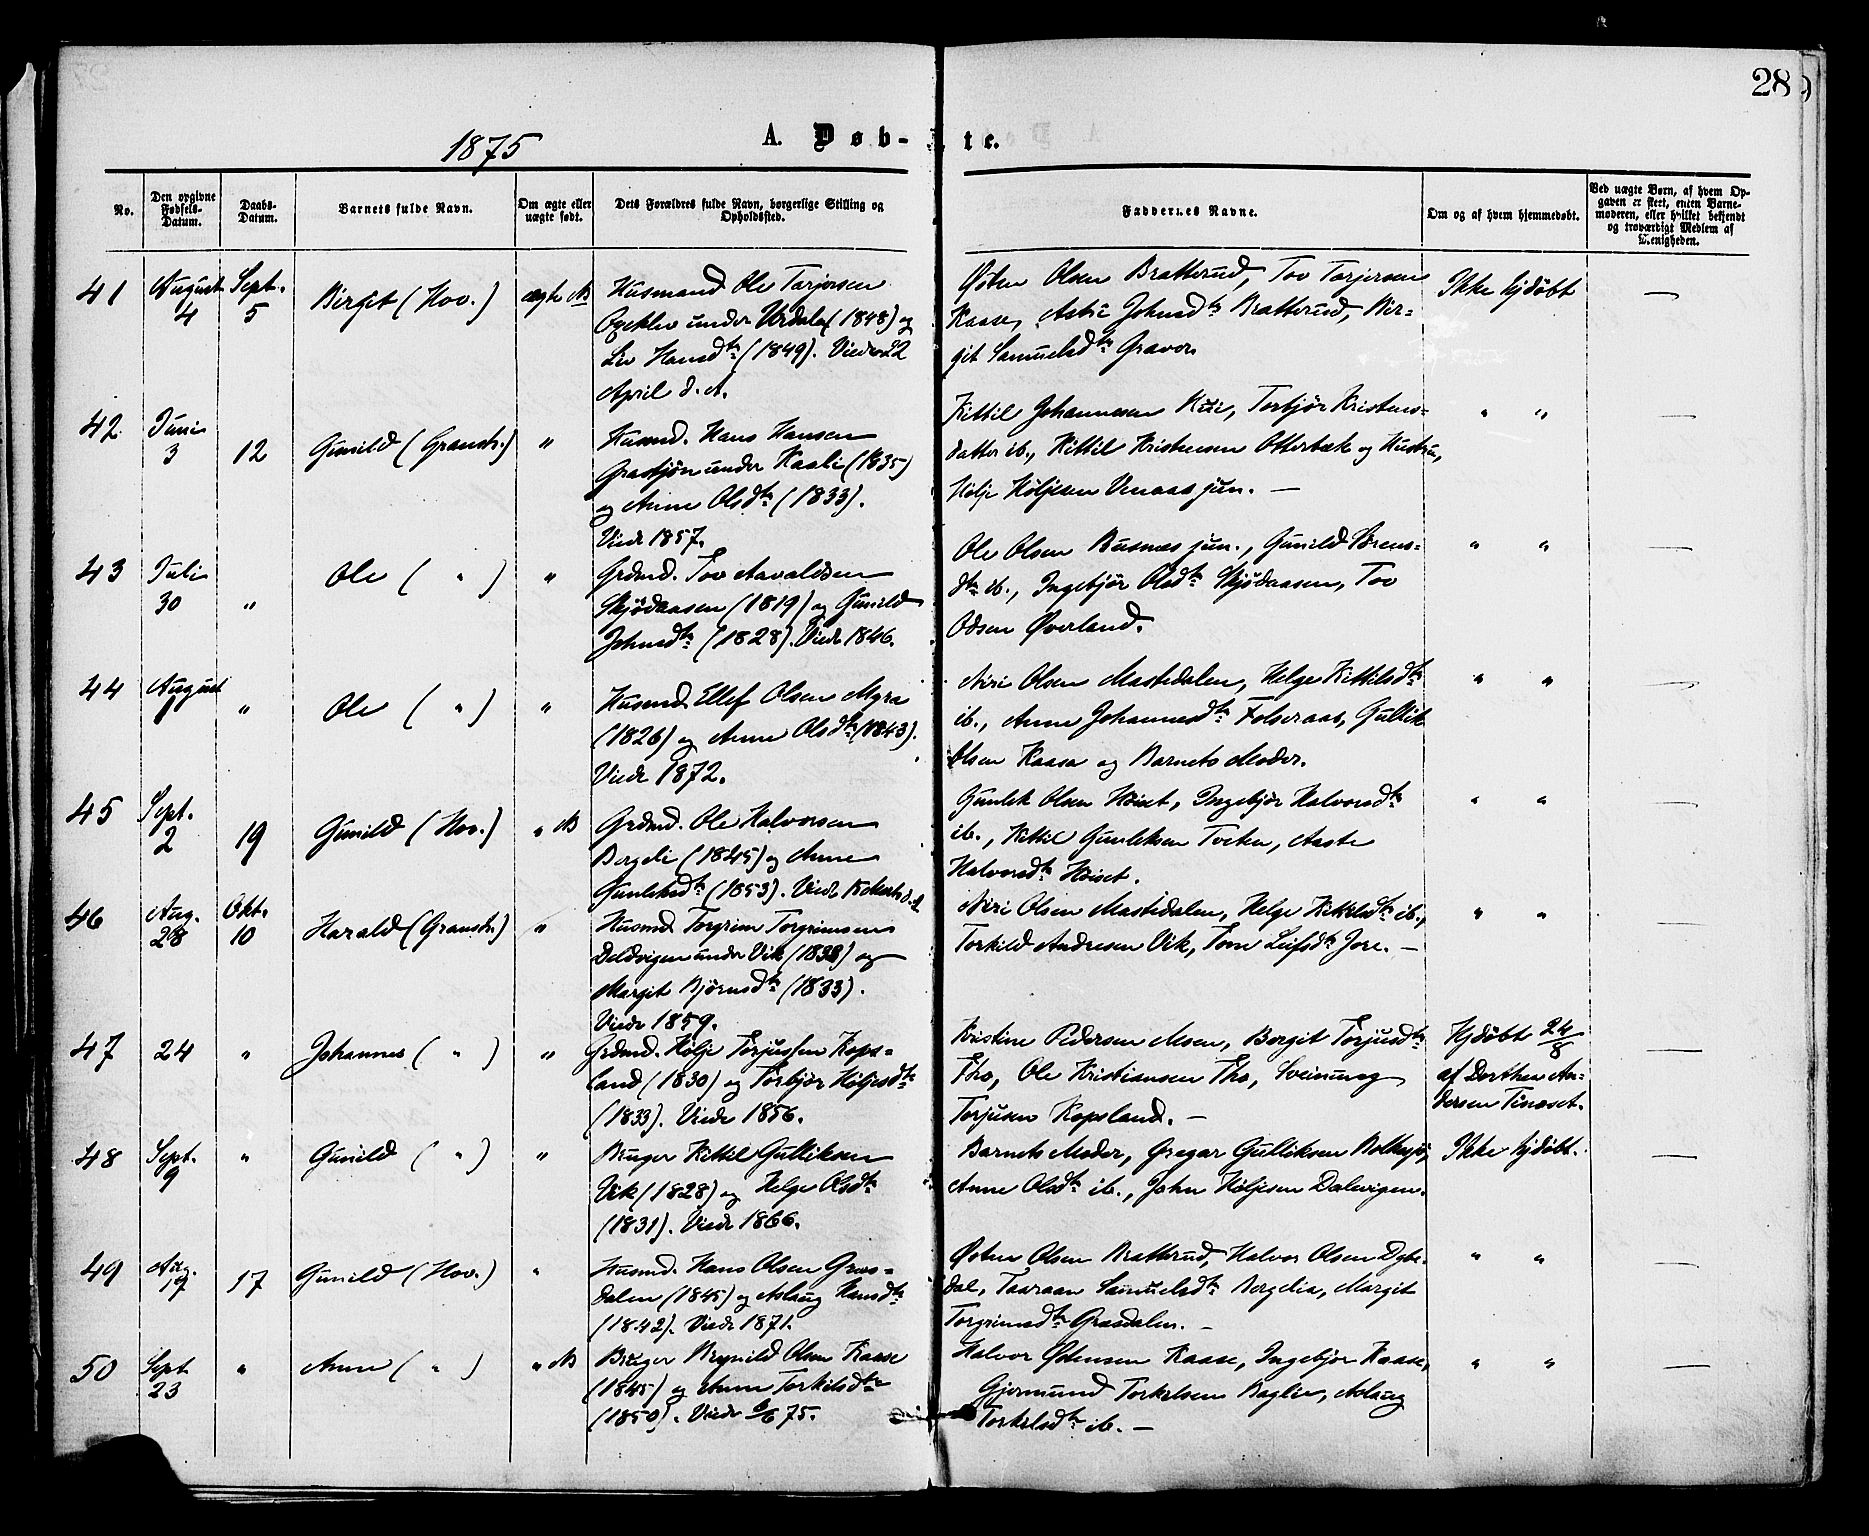 28
1875
A. Døb-
te.
No.
Den opgivne Fødsels-Datum.
Daabs-Datum.
Barnets fulde Navn.
Om ægte eller uægte født.
Dets Forældres fulde Navn, borgerlige Stilling og Opholdssted.
Faddernes Navne.
Om og af hvem hjemmedøbt.
Ved uægte Børn, af hvem Opgaven er skeet, enten Barnemoderen, eller hvilket bekjendt og troværdigt Medlem af Menigheden.
41 August 4 Sept. 5 Birgit (Hov.) ægte
Husmand Ole Torjersen
under Urdalen (1848) og
Liv Hansdtr (1849). Viede 22
April d. A.
Østen Olsen Bratterud, Tov Torjersen
Kaase, Johnsdtr Bratterud, Bir-
git Samuelsdtr Graver
Ikke hjdøbt —
42 Juni 3 12 Gunild (Gransh.) "
Husmd. Hans Hansen
Grastjøn under Kaali (1835)
og Anne Olsdtr (1833).
Viede 1857.
Kittil Johannesen Torbjør Kristens-
datter ib., Kittil Kristensen Otterbæk og Hustru,
Hølje Høljesen Venaas jun. —
" " —
43 Juli 30 " Ole ( " ) "
Grdmd. Tov Aavaldsen
Skjødaasen (1819) og Gunild
Johnsdtr (1828). Viede 1846.
Ole Olsen Busnes jun., Gunild Sørens-
dtr ib., Ingebjør Olsdtr Skjødaasen, Tov
Odsen Øverland.
" " —
44 August " Ole ( " ) "
Husmd. Ellef Olsen Myra
(1826) og Anne Olsdtr (1843).
Viede 1872.
Niri Olsen Mastedalen, Helge Kittilsdtr
ib., Anne Johannesdtr Folseraas, Gullik
Olsen Kaasa og Barnets Moder.
" " —
45 Sept. 2 19 Gunild (Hov.) "
Grdmd. Ole Halvorsen
Bergli (1845) og Anne
Gunleksdtr (1853). Viede
Gunlek Olsen Høiset, Ingebjør Halvorsdtr
ib., Kittil Gunleksen Tveten, Aaste
Halvorsdtr Høiset.
" " —
46 Aug. 28 Okt. 10 Harald (Gransh.) "
Husmd. Torgrim Torgrimsen
Daldvigen under Vik (1838) og
Margit Bjørnsdtr (1833).
Viede 1859.
Niri Olsen Mastedalen, Helge Kittilsdtr ib.,
Torkild Andresen Vik, Tone Leifsdtr Jore. —
" " —
47 24 " Johannes ( " ) "
Grdmd. Hølje Torjussen Kops-
land (1830) og Torbjør Høljesdtr
(1833). Viede 1856.
Kristine Pedersen Moen, Bergit Torjusdtr
Tho, Ole Kristiansen Tho, Sveinung
Torjusen Kopsland. —
Hjdøbt 24/8
af Dorthea An-
dersen Tinoset.
—
48 Sept. 9 " Gunild ( " ) "
Bruger Kittil Gulliksen
Vik (1828) og Helge Olsdtr
(1831). Viede 1866.
Barnets Moder, Gregar Gulliksen Bolkesjø,
Anne Olsdtr ib., John Høljesen Dalevigen.
Ikke hjdøbt. —
49 Aug. 17 17 Gunild (Hov.) "
Husmd. Hans Olsen Gras-
dalen (1845) og Aslaug Hansdtr
(1842). Viede 1871.
Østen Olsen Bratterud, Halvor Olsen Dybe-
dal, Taaraan Samuelsdtr Berglia, Margit
Torgrimsdtr Grasdalen. —
" " —
50 Sept 23 " Anne ( " ) "
Bruger Brynild Olsen Kaase
(1845) og Anne Torkilsdtr
(1850). Viede 6/6 75.
Halvor Østensen Kaase, Ingebjør Kaase,
Gjermund Torkelsen Baglie, Aslaug
Torkelsdtr ib. —
" " —